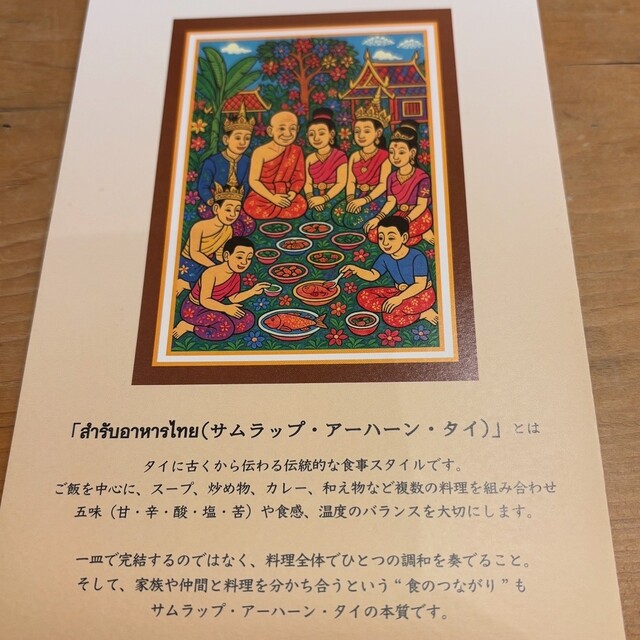 「สำรับอาหารไทย(サムラップ・アーハーン・タイ)」とは
タイに古くから伝わる伝統的な食事スタイルです。
ご飯を中心に、スープ、炒め物、カレー、和え物など複数の料理を組み合わせ
五味（甘・辛・酸・塩・苦）や食感、温度のバランスを大切にします。
一皿で完結するのではなく、料理全体でひとつの調和を奏でること。
そして、家族や仲間と料理を分かち合うという“食のつながり”も
サムラップ・アーハーン・タイの本質です。